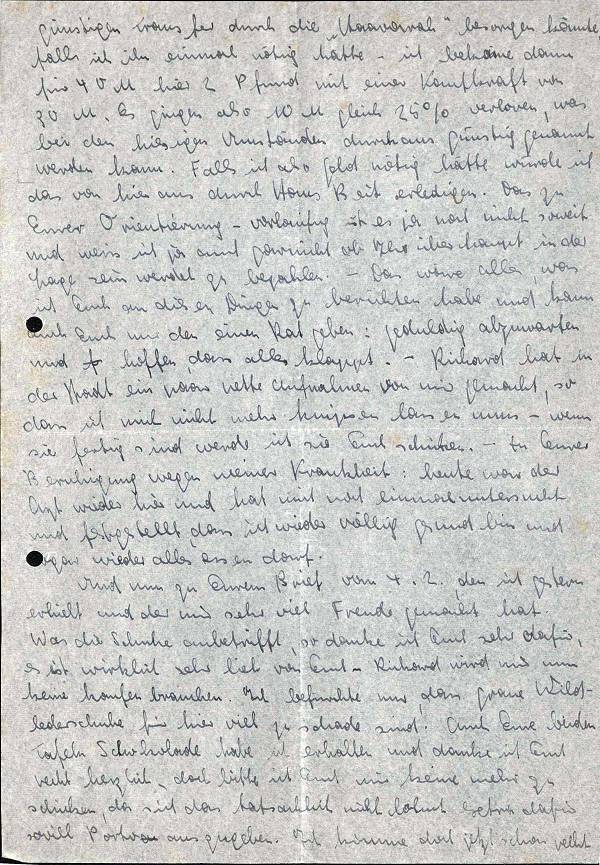 günstigen Transfer durch die „Haavarah" besorgen könnte,
falls ich ihn einmal nötig hätte – ich bekäme dann
für 40 M hier 2 Pfund mit einer Kaufkraft von
30 M. Es gingen also 10 M gleich 25% verloren, was
bei den hiesigen Umständen durchaus günstig genannt
werden kann. Falls ich also Geld nötig hätte würde ich
das von hier aus durch Hans Beit erledigen. Das zu
Eurer Orientierung – vorläufig ist es ja noch nicht soweit
und weiss ich ja auch garnicht ob Ihr überhaupt in der
Lage sein werdet zu bezahlen. – Das wäre alles, was
ich Euch an diesen Dingen zu berichten habe und kann
auch Euch nur den einen Rat geben: geduldig abzuwarten
und zu hoffen, dass alles klappt. – Richard hat in
der Stadt ein paar nette Aufnahmen von mir gemacht, so
dass ich mich nicht mehr knipsen lassen muss – wenn
sie fertig sind werde ich sie Euch schicken. – Zu Eurer
Beruhigung wegen meiner Krankheit: heute war der
Arzt wieder hier und hat mich noch einmal untersucht
und festgestellt dass ich wieder völlig gesund bin und
sogar wieder alles essen darf.
Und nun zu Eurem Brief vom 4. 2., den ich gestern
erhielt und der mir sehr viel Freude gemacht hat.
Was die Schuhe anbetrifft, so danke ich Euch sehr dafür,
es ist wirklich sehr lieb von Euch – Richard wird mir nun
keine kaufen brauchen. Ich befürchte nur, dass graue Wild-
lederschuhe für hier viel zu schade sind! Auch Eure beiden
Tafeln Schokolade habe ich erhalten und danke ich Euch
recht herzlich, doch bitte ich Euch mir keine mehr zu
schicken, da sich das tatsächlich nicht lohnt dafür
soviel Porto auszugeben. Ich komme doch jetzt schon recht